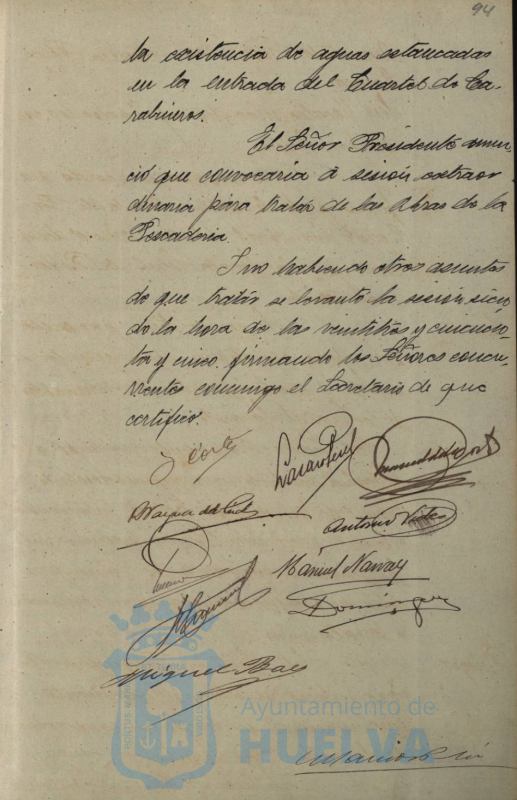 94
la existencia de aguas estancadas
en la entrada del Cuartel de Ca-
rabineros.
El Señor Presidente anun-
ció que convocaria á sesión extraor
dinaria para tratar de las obras de la
Pescaderia.
I no habiendo otros asuntos
de que tratar se levantó la sesión sien-
do la hora de las veintitres y cincuen-
ta y cinco firmando los Señores concu-
rrentes conmigo el Secretario de que
certifico.
J Corte
Lazaro Perez
Antonio Vides
Manuel Narvaez
Dominguez
Miguel Baez
Ayuntamiento de
HUELVA